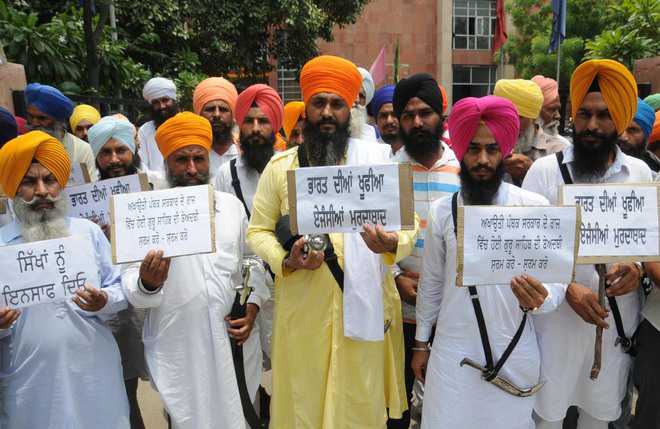 ਸਿੱਖਾਂ ਨੂੰ
ਇਨਸਾਫ ਦਿਓ
ਅਖਾਉਤੀ ਪੰਥਕ ਸਰਕਾਰ ਦੇ ਰਾਜ
ਵਿੱਚ ਹੋਈ ਗੁਰੂ ਸਾਹਿਬ ਦੀ ਬੇਅਦਬੀ
ਸ਼ਰਮ ਕਰੋ - ਸ਼ਰਮ ਕਰੋ
ਭਾਰਤ ਦੀਆਂ ਖੂਫੀਆ
ਏਜੰਸੀਆਂ ਮੁਰਦਾਬਾਦ
ਅਖਾਉਤੀ ਪੰਥਕ ਸਰਕਾਰ ਦੇ ਰਾਜ
ਵਿੱਚ ਹੋਈ ਗੁਰੂ ਸਾਹਿਬ ਦੀ ਬੇਅਦਬੀ
ਸ਼ਰਮ ਕਰੋ - ਸ਼ਰਮ ਕਰੋ
ਭਾਰਤ ਦੀਆਂ ਖੂਫੀਆ
ਏਜੰਸੀਆਂ ਮੁਰਦਾਬਾਦ